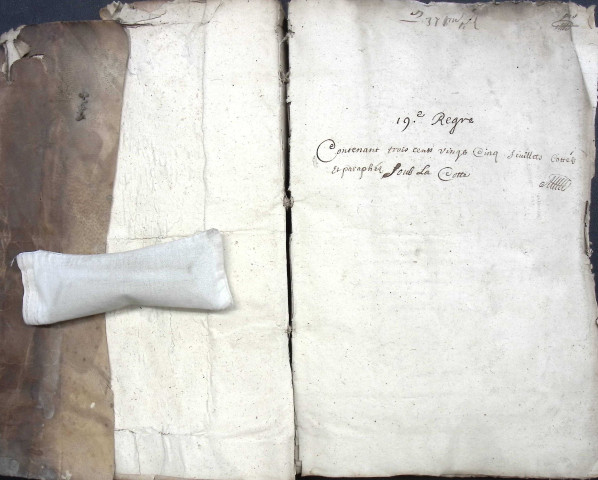 19.e Regre
Contenant trois cents vingt Cinq feuillets Cottés
et paraphés Soub La Cotte